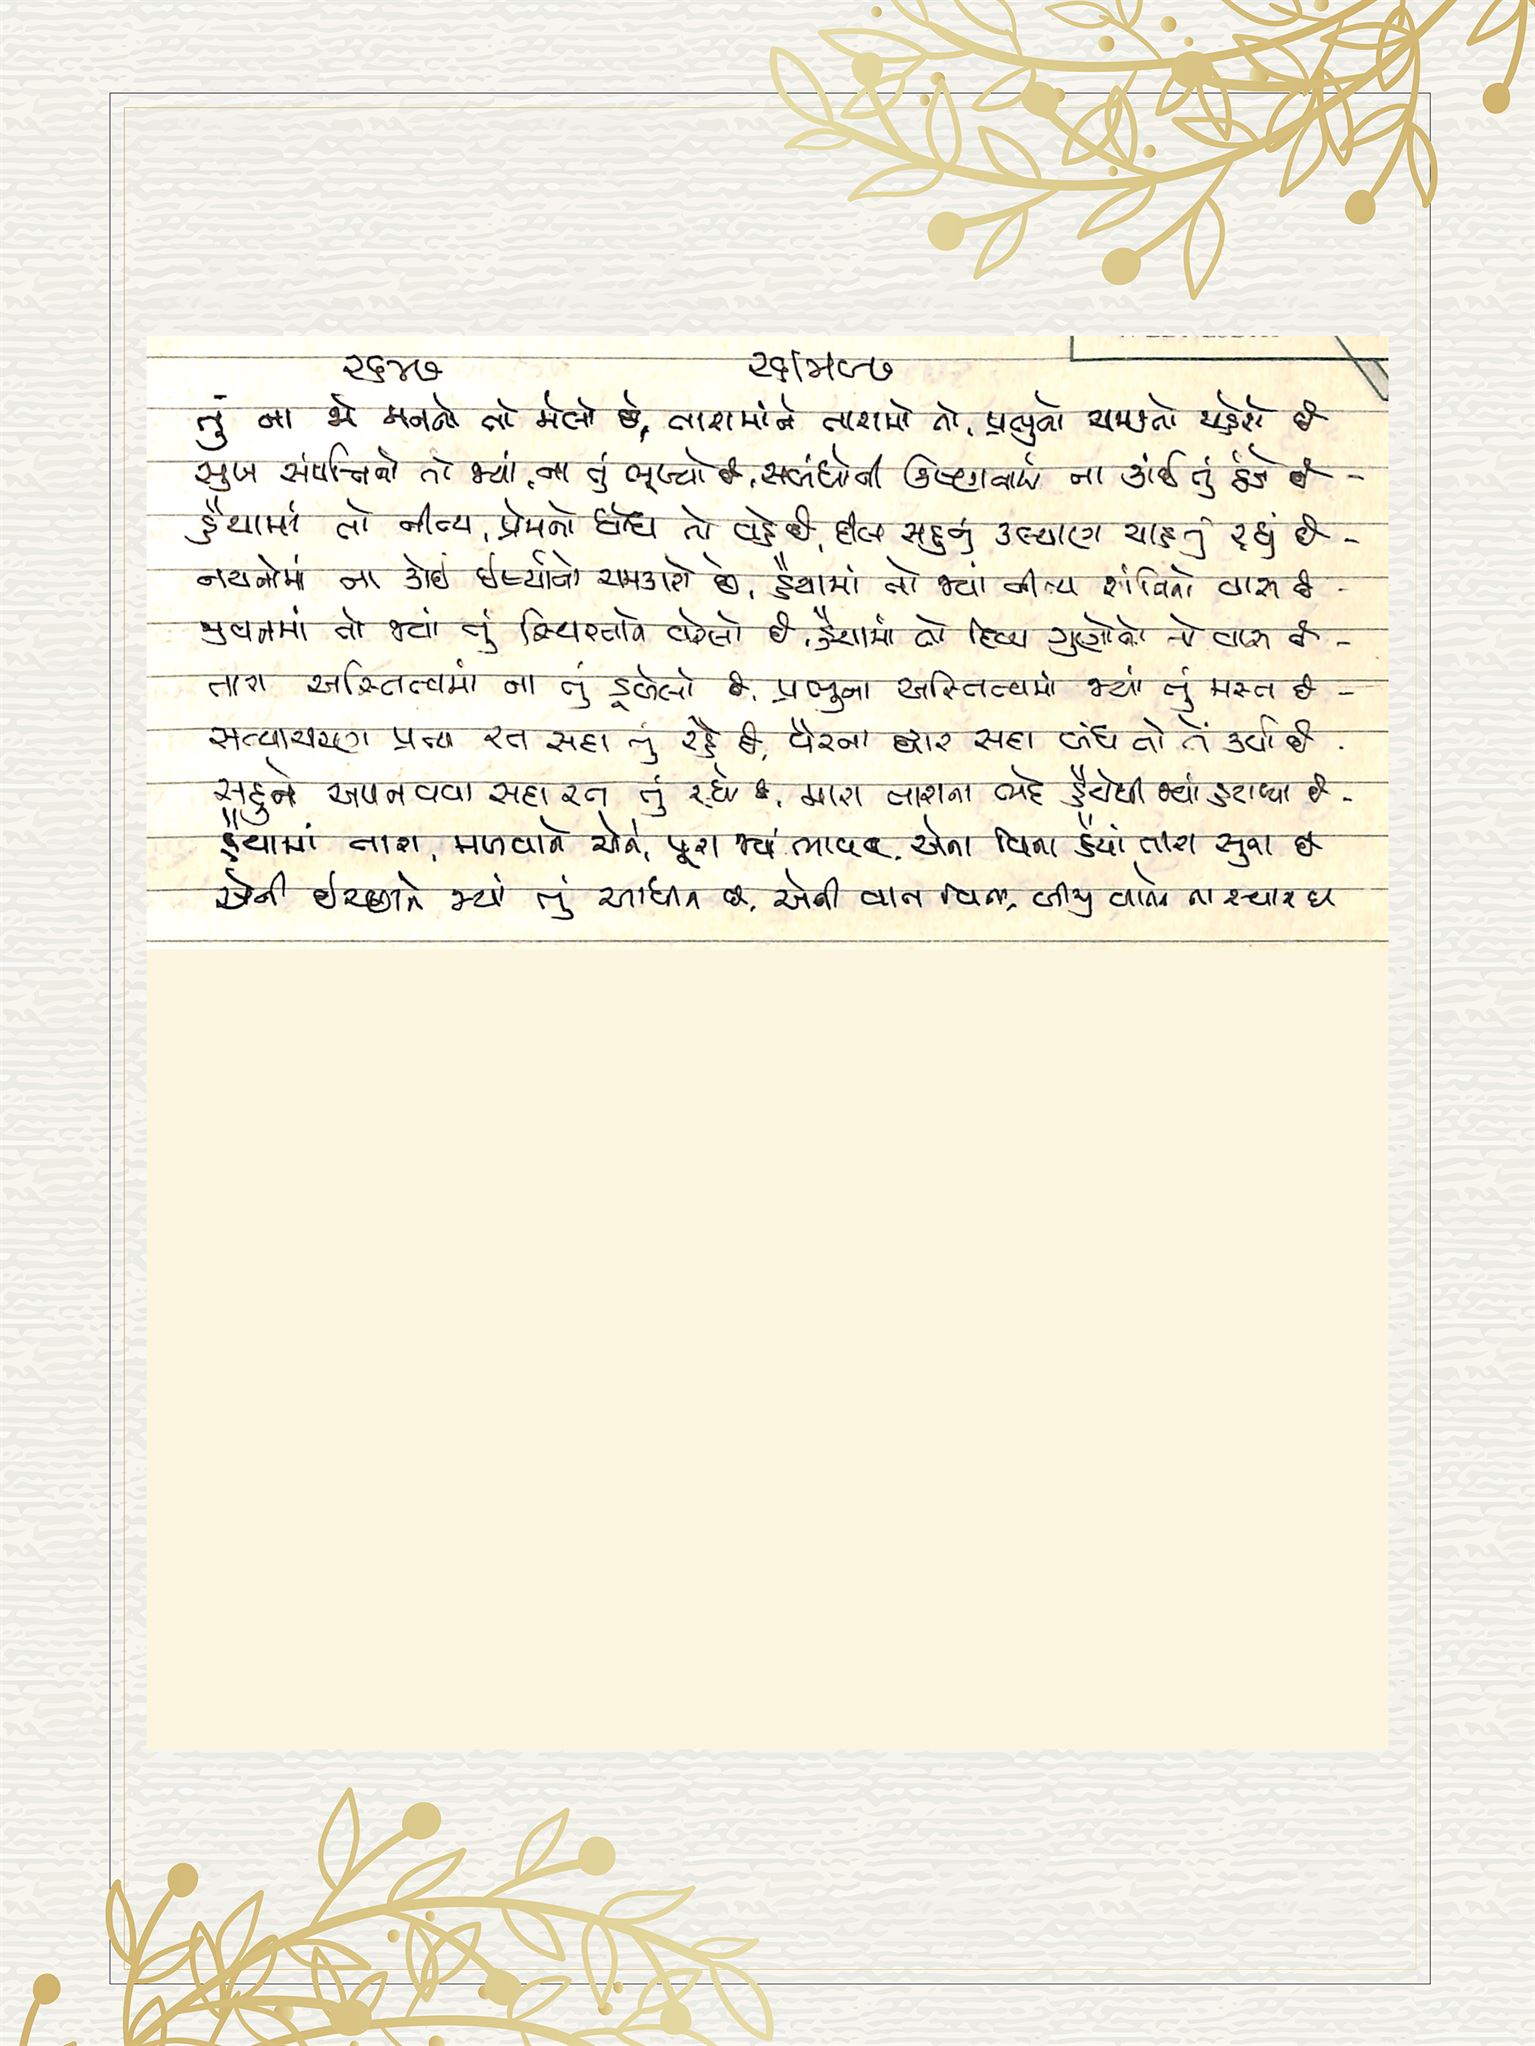 ૨૬૪૭ ૨૬૧૫૮૭
તું ના જે મનનો તો મેલો છે, તારામાંને તારામાં તો, પ્રભુનો ચમકતો ચહેરો છે
સુખ સંપત્તિનો તો જ્યાં, ના તું ભૂખ્યો છે, સબંધોની ના કાંઈ તું છે -
હૈયામાં તો નીત્ય, પ્રેમનો ધોધ તો વહે છે, દીલ સહુનું કલ્યાણ ચાહતું રહ્યું છે -
નયનોમાં ના કોઈ ઈર્ષ્યાનો ચમકારો છે, હૈયામાં તો જ્યાં નીત્ય શાંતિનો વાસ છે -
જીવનમાં તો જ્યાં તું સ્થિરતાને વરેલો છે, હૈયામાં તો દિવ્ય ગુણોનો તો વાસ છે -
તારા અસ્તિત્વમાં ના તું ડૂબેલો છે, પ્રભુના અસ્તિત્વમાં જ્યાં તું મસ્ત છે -
સત્યાચરણ રત સદા તું રહે છે, વૈરના દ્વાર સદા બંધ તો તેં કર્યા છે -
સહુને અપનવવા સદા રત તું રહ્યો છે, મારા તારાના ભેદ હૈયેથી જ્યાં હટાવ્યા છે -
હૈયામાં તારા, મળવાને એને, પૂરા જ્યાં ભાવ છે, એના વિના હૈયાં તારા સુના છે
એની ઈચ્છાને જ્યાં તું આધીન છે, એની વાત વિના, બીજી વાતને ના સ્થાન છે